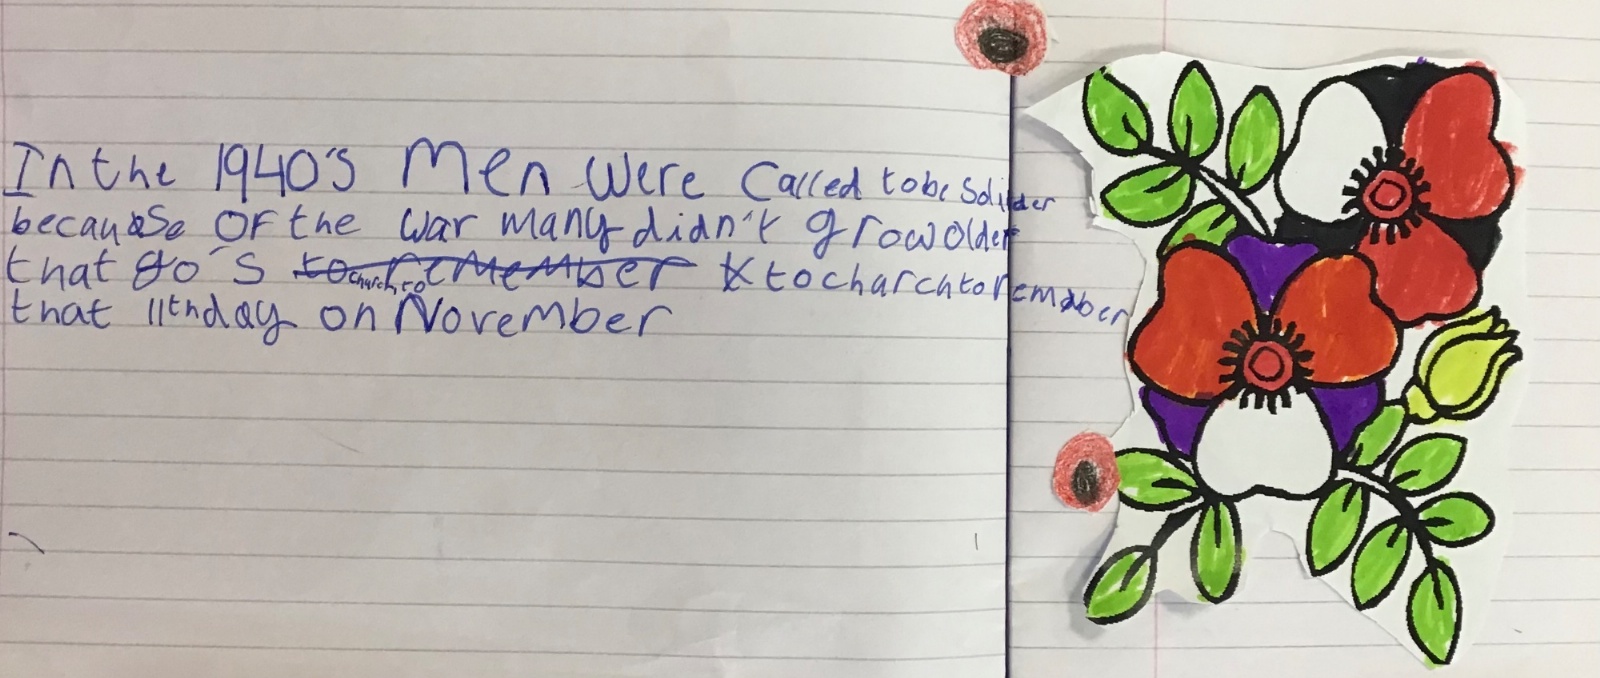 In the 1940's Men were Called to be Solider
because OF the war many didn't grow older
that go's to church to remember to charch to remember
that 11th day on November